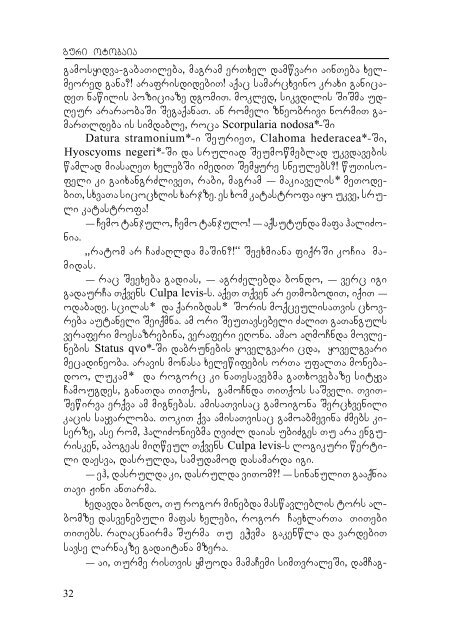 გური ოტობაია
გამოსყიდვა-გაბათილება, მაგრამ ერთხელ დამწვარი აინთება ხელ-
მეორედ განა?! არაფრისდიდებით! აქაც სამარცხვინო კრახი განიცა-
დეთ ნაწილის პოზიციაზე დგომით. მოკლედ, სიკვდილის შიშმა უდ-
ღეურ არარაობაში შეგაქანათ. ან რომელი ზნეობრივი ნორმით გა-
მართლდება ის სიმდაბლე, როცა Scorpularia nodosa*-ში
Datura stramonium*-ი შეურიეთ, Clahoma hederacea*-ში,
Hyoscyoms negeri*-ში და სრულიად შეუმოწმებლად უკვდავების
წამლად მიასაღეთ ხელებში იმედით შემყურე სნეულებს?! წუთისო-
ფელი კი გაიხანგრძლივეთ, რაბი, მაგრამ — მაკიაველის* მეთოდე-
ბით, სხვათა სიცოცხლის ხარჯზე. ეს ხომ კატასტროფა იყო უკვე, სრუ-
ლი კატასტროფა!
— ჩემო ტანჯულო, ჩემო ტანჯულო! — აქსუტუნდა მაფა ჰალიძო-
ნია.
„რატომ არ ჩაძაღლდა მაშინ?!“ შეეხმიანა ფიქრში კოჩია მა-
მიდას.
— რაც შეეხება გადიას, — აგრძელებდა ბონდო, — ვერც იგი
გადაურჩა თქვენს Culpa levis-ს. აქეთ თქვენ არ ეთმობოდით, იქით —
ოდაბადე. სცილას* და ქარიბდას* შორის მოქცეულისათვის ცხოვ-
რება აუტანელი შეიქმნა. ამ ორი შეუთავსებელი ძალით გათანგულს
ვერაფერი მოესაზრებინა, ვერაფერი ეღონა. ამაო აღმოჩნდა მოვლე-
ნების Status qvo*-ში დაბრუნების ყოველგვარი ცდა, ყოველგვარი
მეცადინეობა. არავის მონასა ხელეწიფების ორთა უფალთა მონება-
დოო, ლუკამ* და როგორც კი ნათესავებმა გათხოვებაზე სიტყვა
ჩამოუგდეს, განათდა თითქოს, გამოჩნდა თითქოს საშველი. თვით-
შეწირვა ერქვა ამ მიგნებას. ამისათვისაც გამოიგონა შერცხვენილი
კაცის საყვარლობა. თოკით ქვა ამისათვისაც გამოაბმევინა ძმებს კი-
სერზე, ასე რომ, ჰალიძონიებმა ღვიძლ დაიას უბიძგეს თუ არა ენგუ-
რისკენ, აპოგეას მიღწეულ თქვენს Culpa levis-ს ლოგიკური წერტი-
ლი დაესვა, დასრულდა, სამუდამოდ დასამარდა იგი.
— ეჰ, დასრულდა კი, დასრულდა ვითომ?! — სინანულით გააქნია
თავი ჟინი ანთარმა.
ხედავდა ბონდო, თუ როგორ მინებდა მასწავლებლის ტორს ალ-
ბომზე დასვენებული მაფას ხელები, როგორ ჩაეხლართა თითები
თითებს. რაღაცნაირმა შურმა თუ ეჭვმა გაკენწლა და ვარდებით
სავსე ლარნაკზე გადაიტანა მზერა.
— აი, თურმე რისთვის ყმუოდა მამაჩემი სიმთვრალეში, დამჩაგ-
32